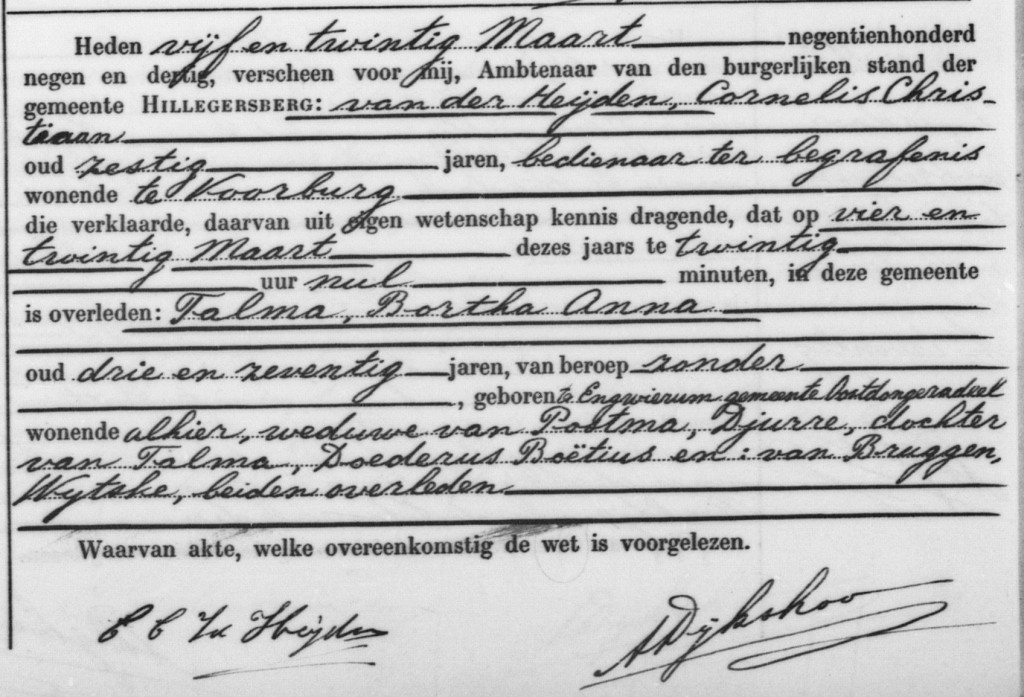 Heden vijf en twintig Maart negentienhonderd
negen en dertig, verscheen voor mij, Ambtenaar van den burgerlijken stand der
gemeente HILLEGERSBERG: van der Heijden, Cornelis Chris-
tiaan
oud zestig jaren, bedienaar ter begrafenis
wonende te Voorburg
die verklaarde, daarvan uit eigen wetenschap kennis dragende, dat op vier en
twintig Maart dezes jaars te twintig
uur nul minuten, in deze gemeente
is overleden: Talma, Bortha Anna
oud drie en zeventig jaren, van beroep zonder
, geboren te Engwierum gemeente Oostdongeradeel
wonende alhier, weduwe van Postma, Djurre, dochter
van Talma, Doederus Boëtius en: van Bruggen,
Wytske, beiden overleden
Waarvan akte, welke overeenkomstig de wet is voorgelezen.
C C vd Heijden
A Dijkshoo